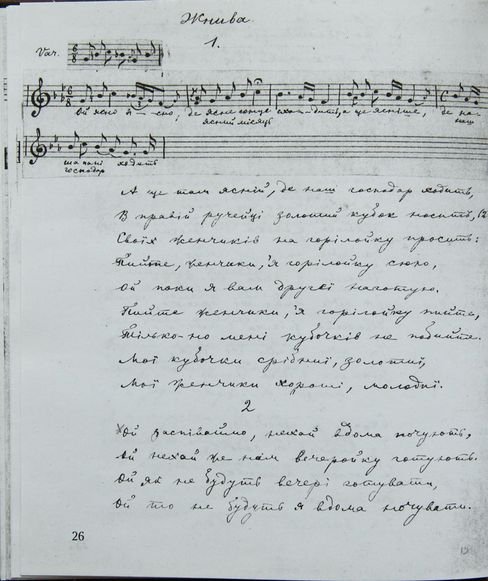 Жнива.
1.
Var.
Ой ясно, ясно, де ясне сонце сходить, а ще ясніше, де на-
ясний місяць наш
ша пані ходить
господар
А ще там ясній, де наш господар ходить,
В правій ручейці золотий кубок носить, (2
Своїх женчиків на горілойку просить:
Пийте, женчики, я горілойку сюю,
Ой поки я вам другеї наготую.
Пийте женчики, я горілойку пийте,
Тілько-но мені кубочків не побийте.
Мої кубочки срібниї, золотиї,
Мої женчики хороші, молодиї.
2
Ой заспіваймо, нехай вдома почують,
Ай нехай же нам вечеройку готують.
Ой як не будуть вечері готувати,
Ой то не будуть я вдома ночувати.
26